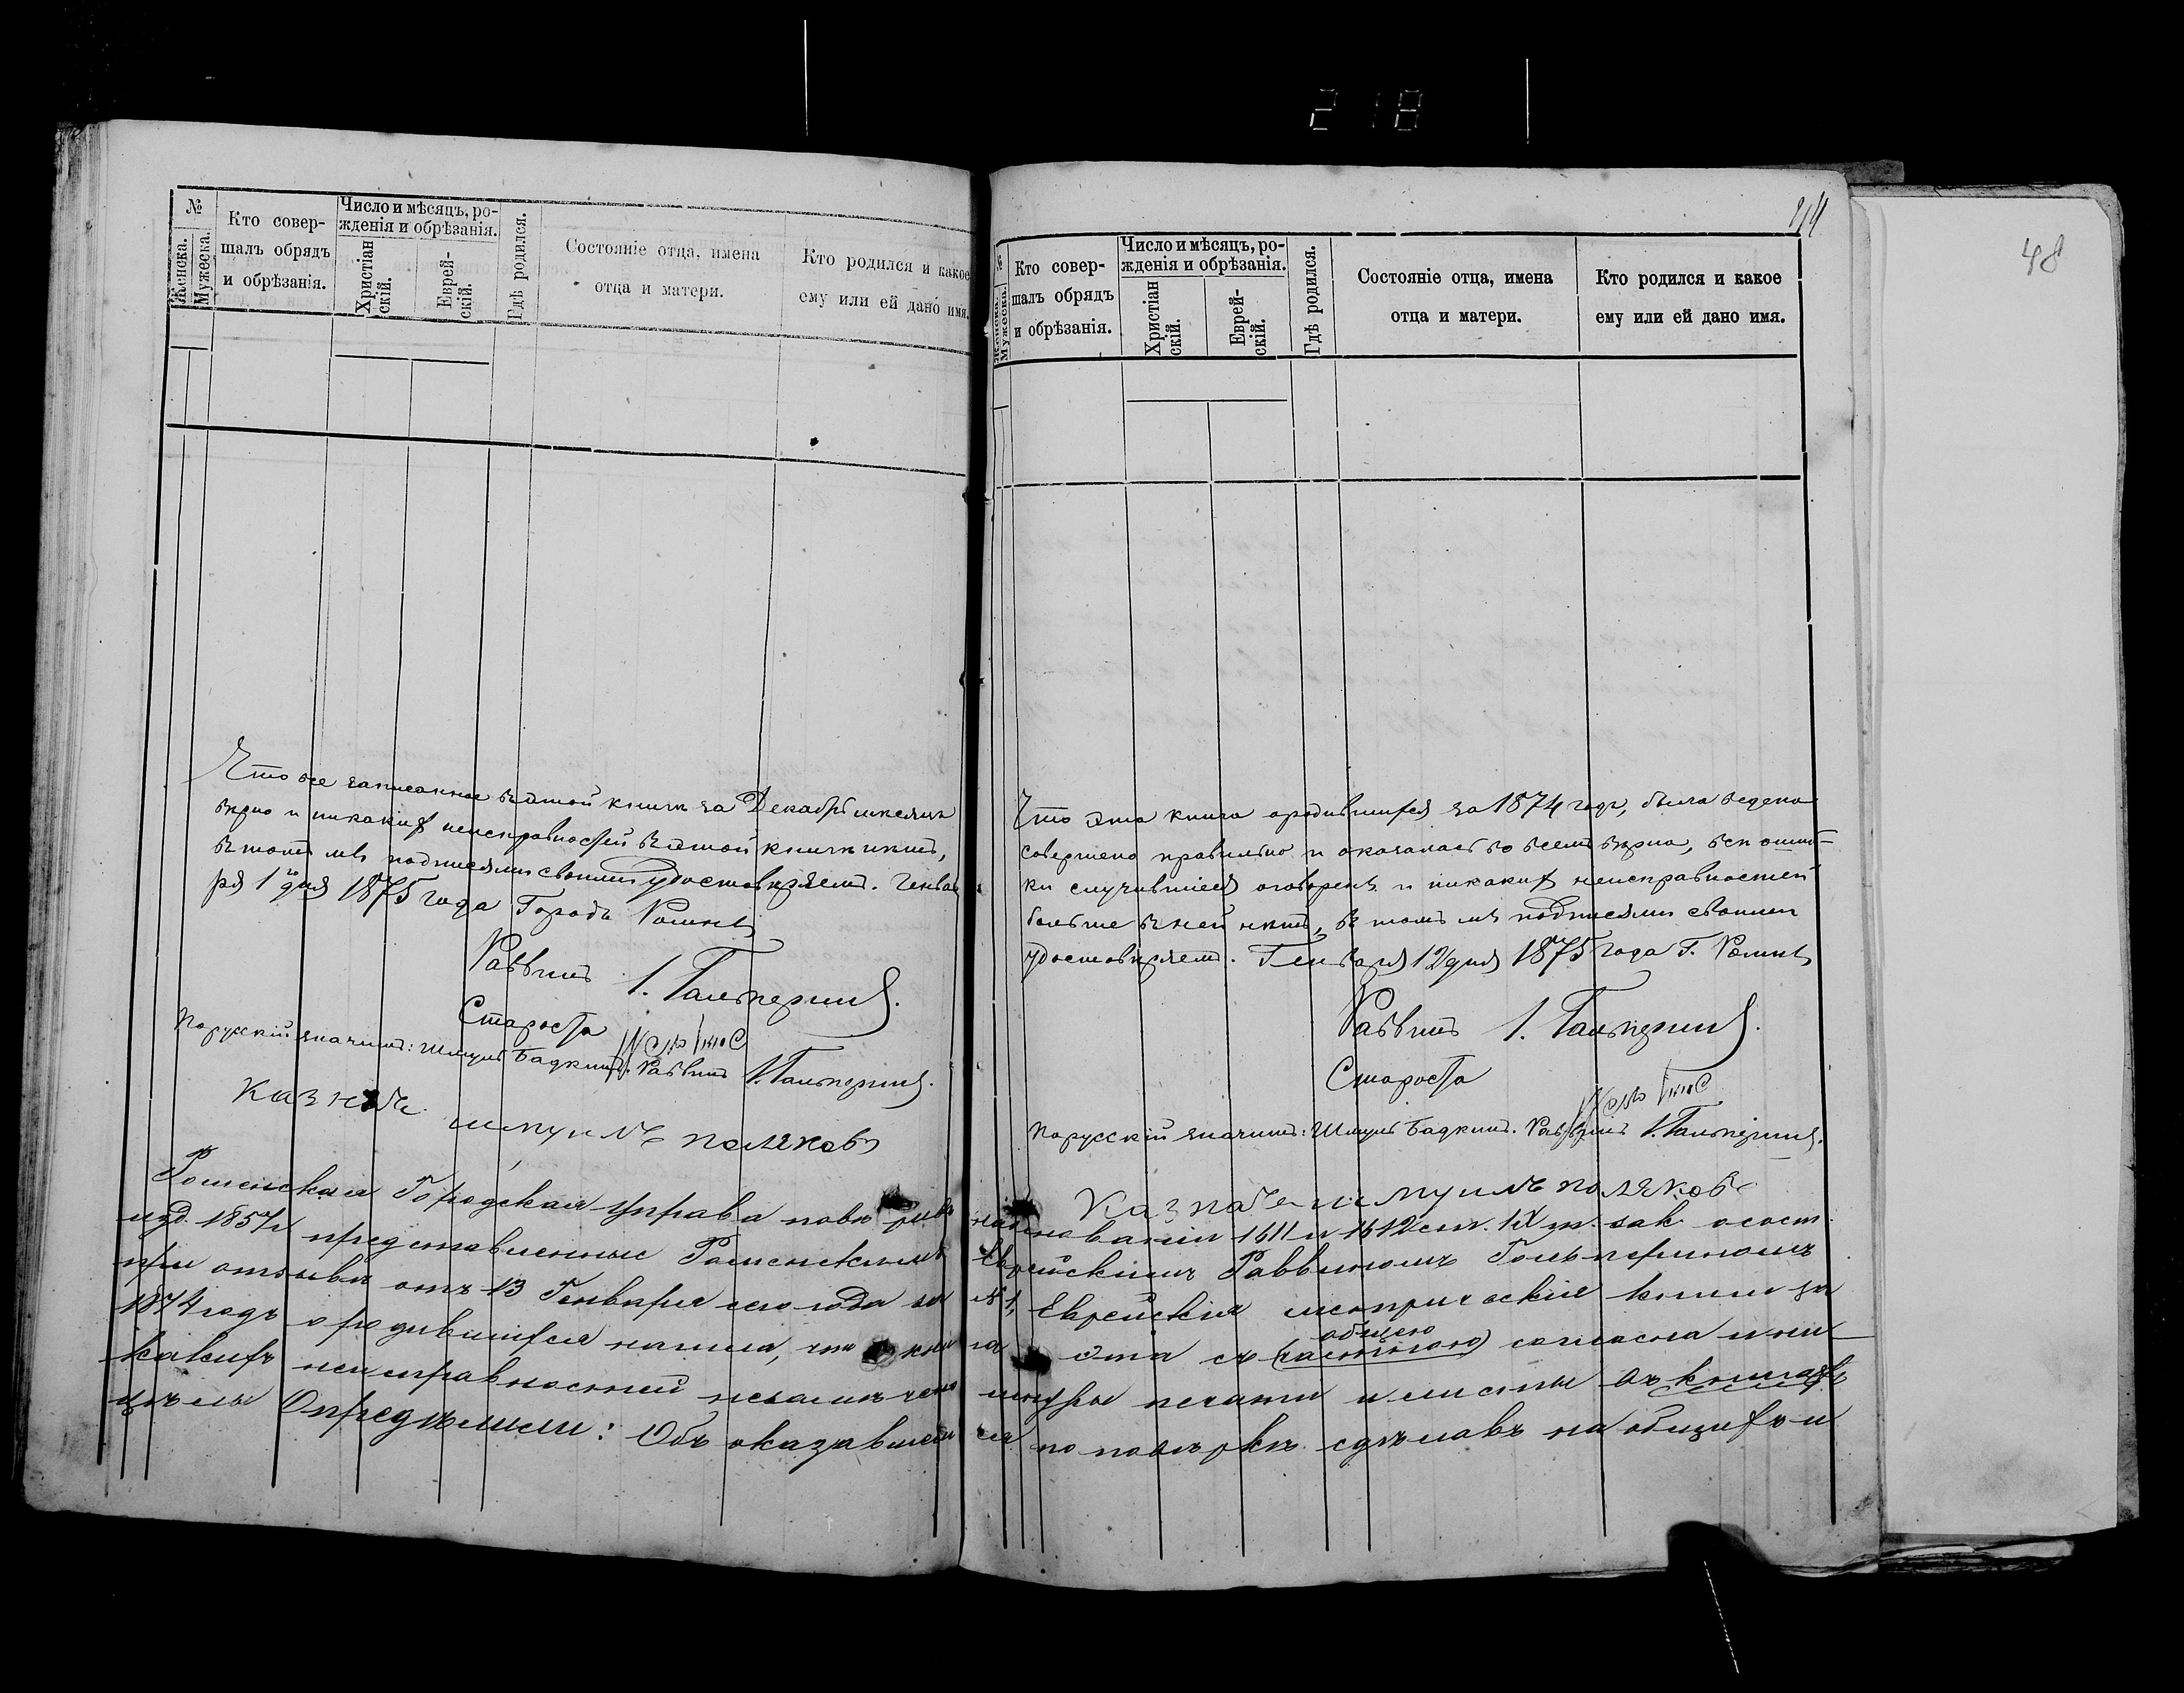 218
№
Женска.
Мужеска.
Кто совер-
шалъ обрядъ
и обрѣзанія.
Число и мѣсяцъ, ро-
жденія и обрѣзанія.
Христіан
скій.
Еврей-
скій.
Гдѣ родился.
Состояніе отца, имена
отца и матери.
Кто родился и какое
ему или ей дано имя.
Что все записанное въ этой книги за Декабрь мѣсяцъ
вѣрно и никакихъ неисправностей въ этой книги нѣтъ,
въ томъ мы подписями своими удостовѣряемъ. Генва
ря 1го дня 1875 года Городъ Ромны
Раввинъ І. Гальперинъ.
Староста
Порусскій значитъ: Шмуль Бадкинъ. Раввинъ І. Гальперинъ.
Казначе шмуилъ поляковъ
214
№
Женска.
Мужеска.
Кто совер-
шалъ обрядъ
и обрѣзанія.
Число и мѣсяцъ, ро-
жденія и обрѣзанія.
Христіан
скій.
Еврей-
скій.
Гдѣ родился.
Состояніе отца, имена
отца и матери.
Кто родился и какое
ему или ей дано имя.
48
Что эта книга ородившихся за 1874 годъ, была ведена
совершено правильно и оказалась во всемъ вѣрна, всѣ ошиб-
ки случившіеся оговорены и никакихъ неисправностей
больше въ ней нѣтъ, въ томъ мы подписями своими
удостовѣряемъ. Генваря 12 дня 1875 года Г. Ромны
Раввинъ І. Гальперинъ.
Староста
Порусскій значитъ: Шмуль Бадкинъ. Раввинъ І. Гальперинъ.
Казначе шмуилъ поляковъ
Роменская Городская Управа на основаніи 1611 и 1612 ст. IX т. зак. о сост.
изд. 1857 г. представленные Роменскимъ Еврейскимъ Раввиномъ Гальпериномъ
при отзывѣ отъ 13 Генваря сего года за № 1, Еврейскія метрическіе книги за
1874 годъ о родившихся нашла, что книга эта съ (частною) общею согласна и ни
какихъ неисправностей незамѣчено шнуры печати и листы въ книгахъ
цѣлы Опредѣлили: Объ оказавшемся по повѣркѣ сдѣлавъ на общихъ и